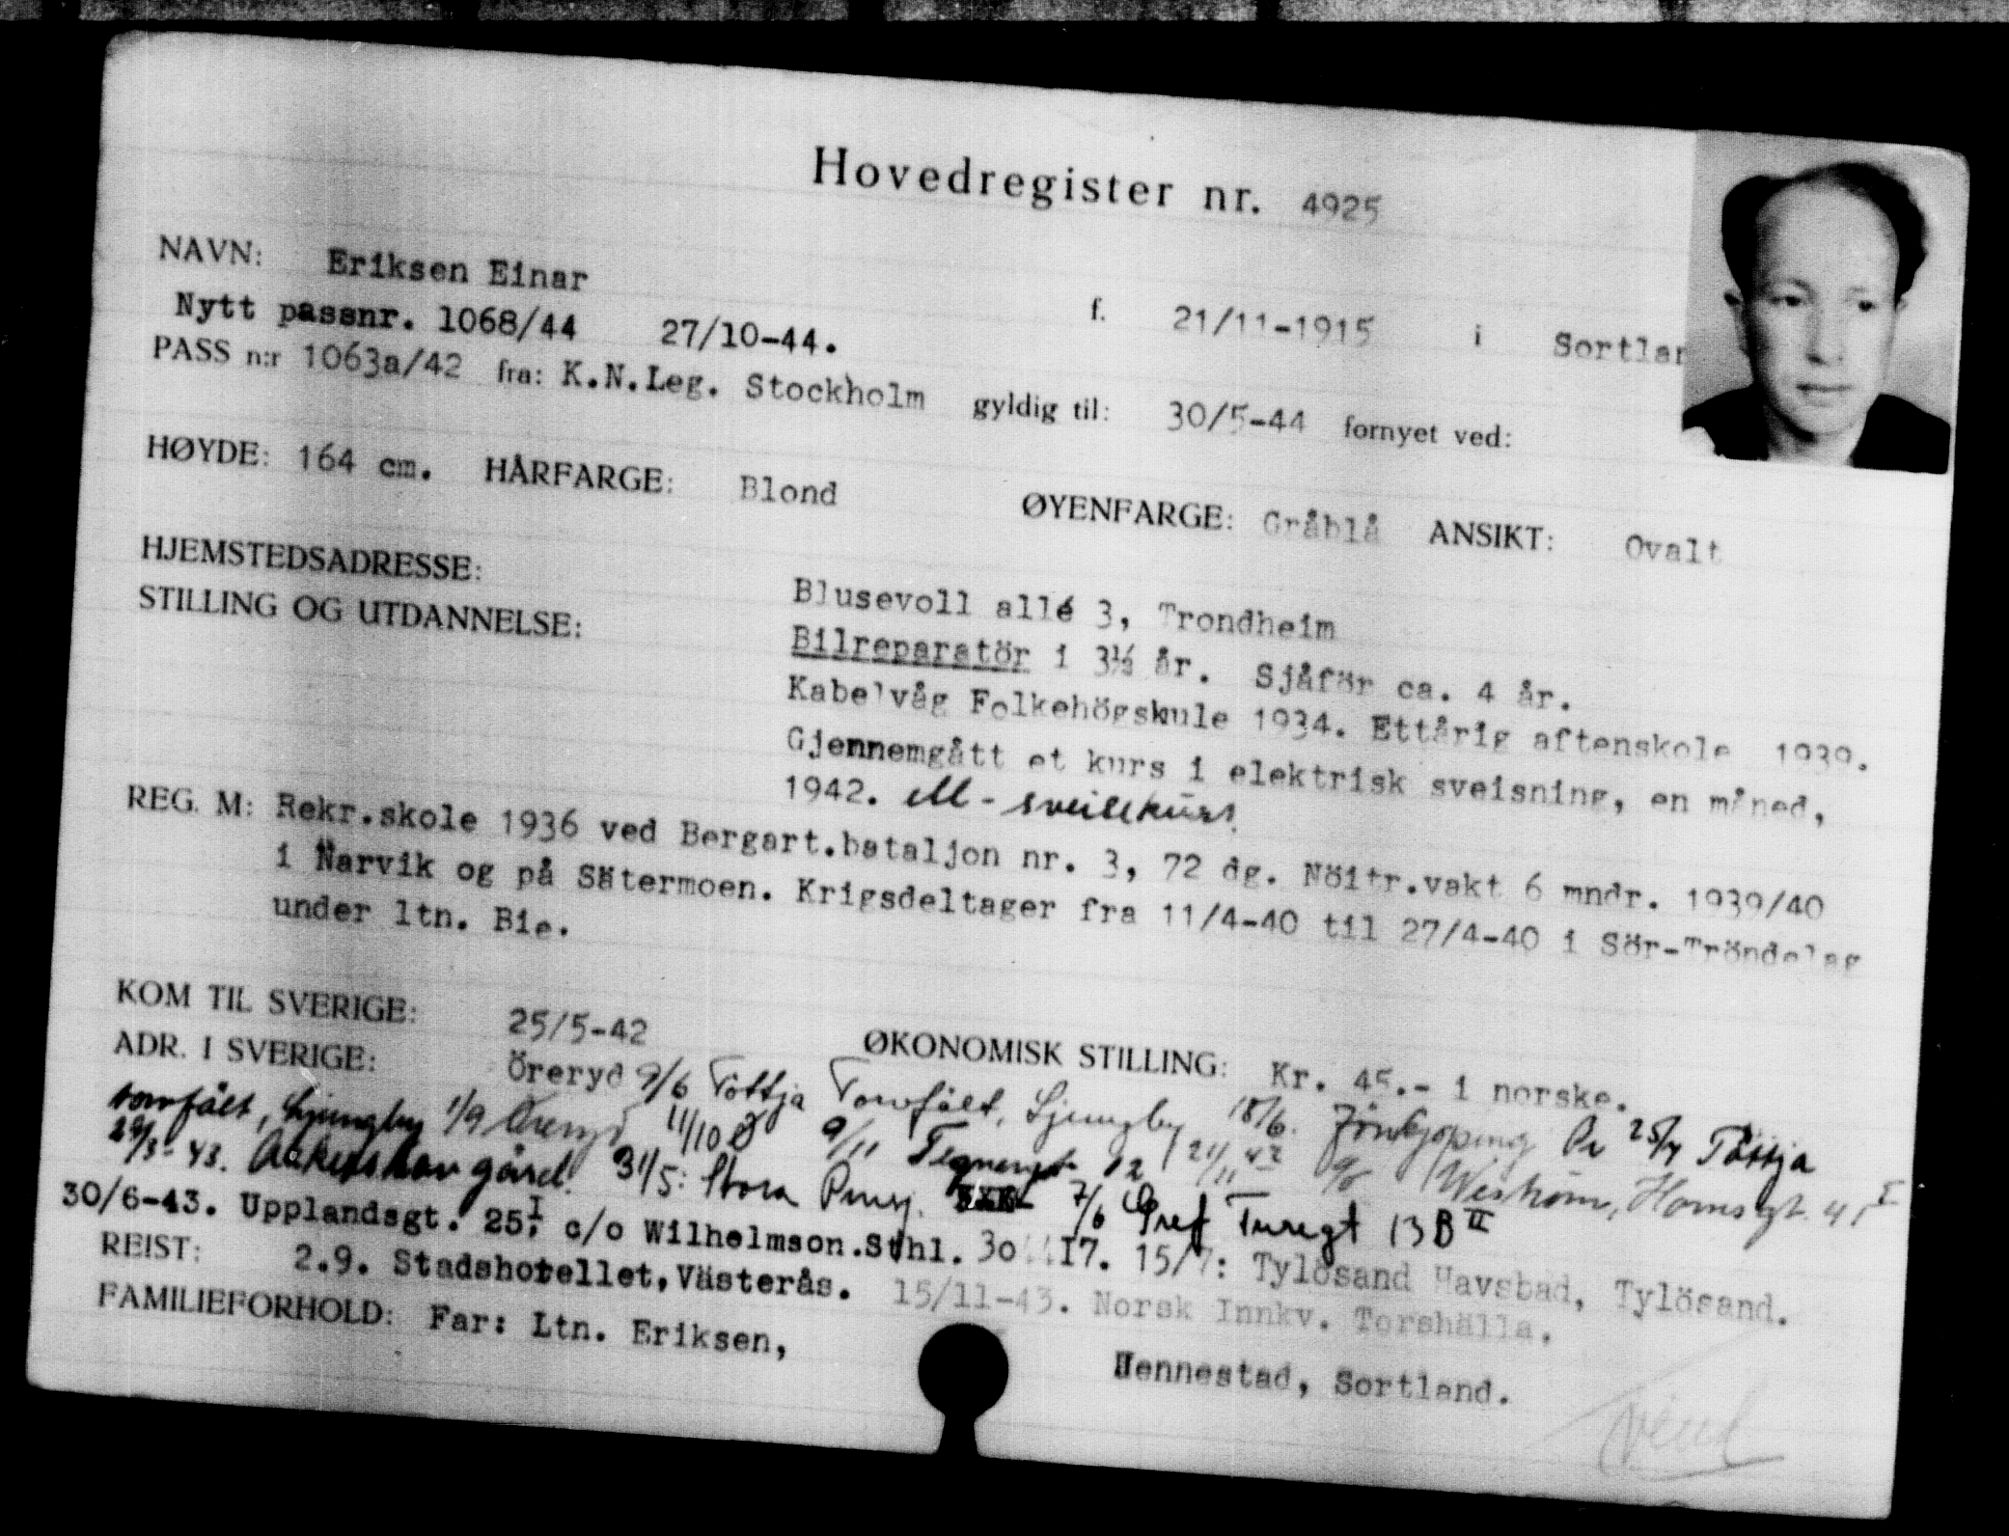 Hovedregister nr. 4925
NAVN: Eriksen Einar f. 21/11-1915 i Sortlan
Nytt passnr. 1068/44 27/10-44.
PASS n:r 1063a/42 fra: K.N.Leg. Stockholm gyldig til: 30/5-44 fornyet ved:
HØYDE: 164 cm. HÅRFARGE: Blond ØYENFARGE: Gråblå ANSIKT: Ovalt
HJEMSTEDSADRESSE: Blusevoll allé 3, Trondheim
STILLING OG UTDANNELSE: Bilreparatör i 3½ år. Sjåför ca. 4 år.
Kabelvåg Folkehögskule 1934. Ettårig aftenskole 1939.
Gjennemgått et kurs i elektrisk sveisning, en måned,
1942. ell-sveisekurs.
REG. M: Rekr.skole 1936 ved Bergart.bataljon nr. 3, 72 dg. Nöitr.vakt 6 mndr. 1939/40
i Narvik og på Sätermoen. Krigsdeltager fra 11/4-40 til 27/4-40 i Sör-Tröndelag
under ltn. Bie.
KOM TIL SVERIGE: 25/5-42 ØKONOMISK STILLING: Kr. 45.- i norske.
ADR. I SVERIGE: Öreryd 9/6 Töttja Torvfält, Ljungby 18/6. Jönkjöping 25/7 Töttja
torvfält, Ljungby 1/9 Öreryd 11/10 9/11 Tegnergt 12 21/11 42 c/o Weström, Hornsgt. 41 I
29/3-43. Aakershov gård. 31/5: Stora 7/6 Gref Turegt 13 B II
30/6-43. Upplandsgt. 25, I c/o Wilhelmson.Sthl. 30 17. 15/7: Tylösand Havsbad, Tylösand.
REIST: 2.9. Stadshotellet, Västerås. 15/11-43. Norsk Innkv. Torshälla.
FAMILIEFORHOLD: Far: Ltn. Eriksen, Hennestad, Sortland.